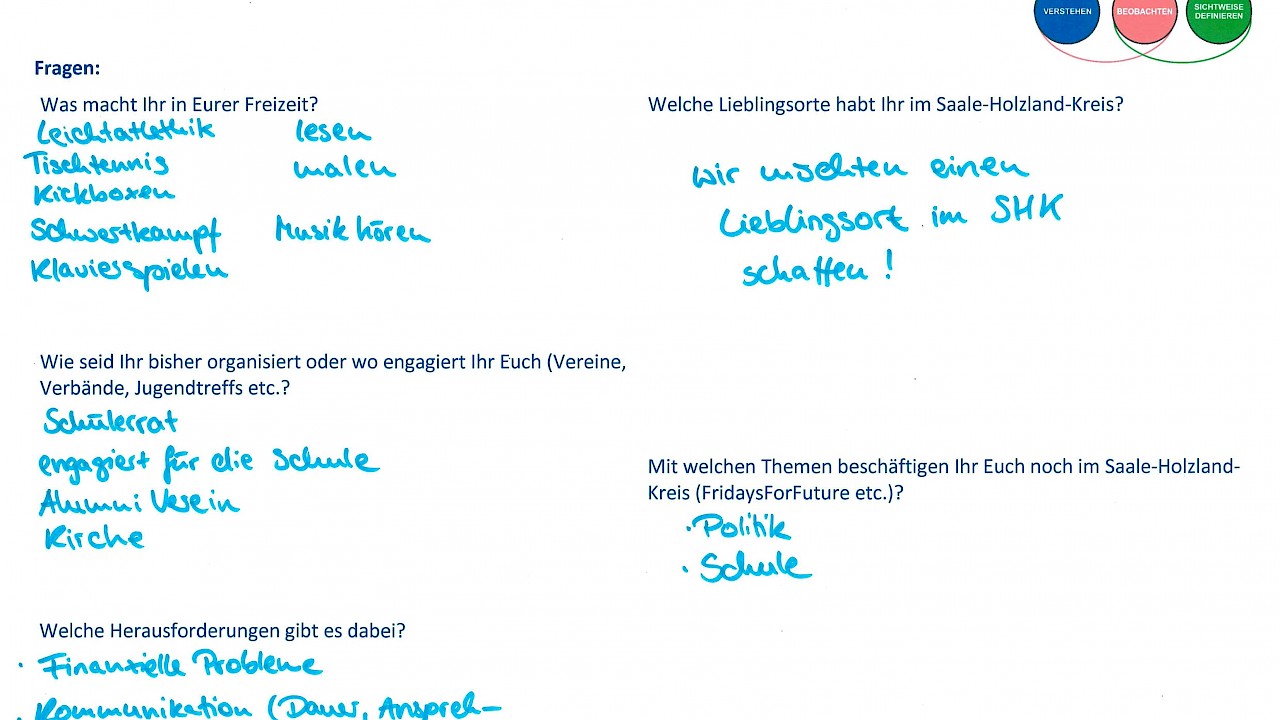 VERSTEHEN
BEOBACHTEN
SICHTWEISE
DEFINIEREN
Fragen:
Was macht Ihr in Eurer Freizeit?
Leichtathethik lesen
Tischtennis malen
Kickboxen
Schwertkampf Musik hören
Klavierspielen
Wie seid Ihr bisher organisiert oder wo engagiert Ihr Euch (Vereine,
Verbände, Jugendtreffs etc.?
Schülerrat
engagiert für die Schule
Alumni Verein
Kirche
Welche Herausforderungen gibt es dabei?
· Finanzielle Probleme
· Kommunikation (Dauer, Ansprech-
Welche Lieblingsorte habt Ihr im Saale-Holzland-Kreis?
wir möchten einen
Lieblingsort im SHK
schaffen!
Mit welchen Themen beschäftigen Ihr Euch noch im Saale-Holzland-
Kreis (FridaysForFuture etc.)?
· Politik
· Schule